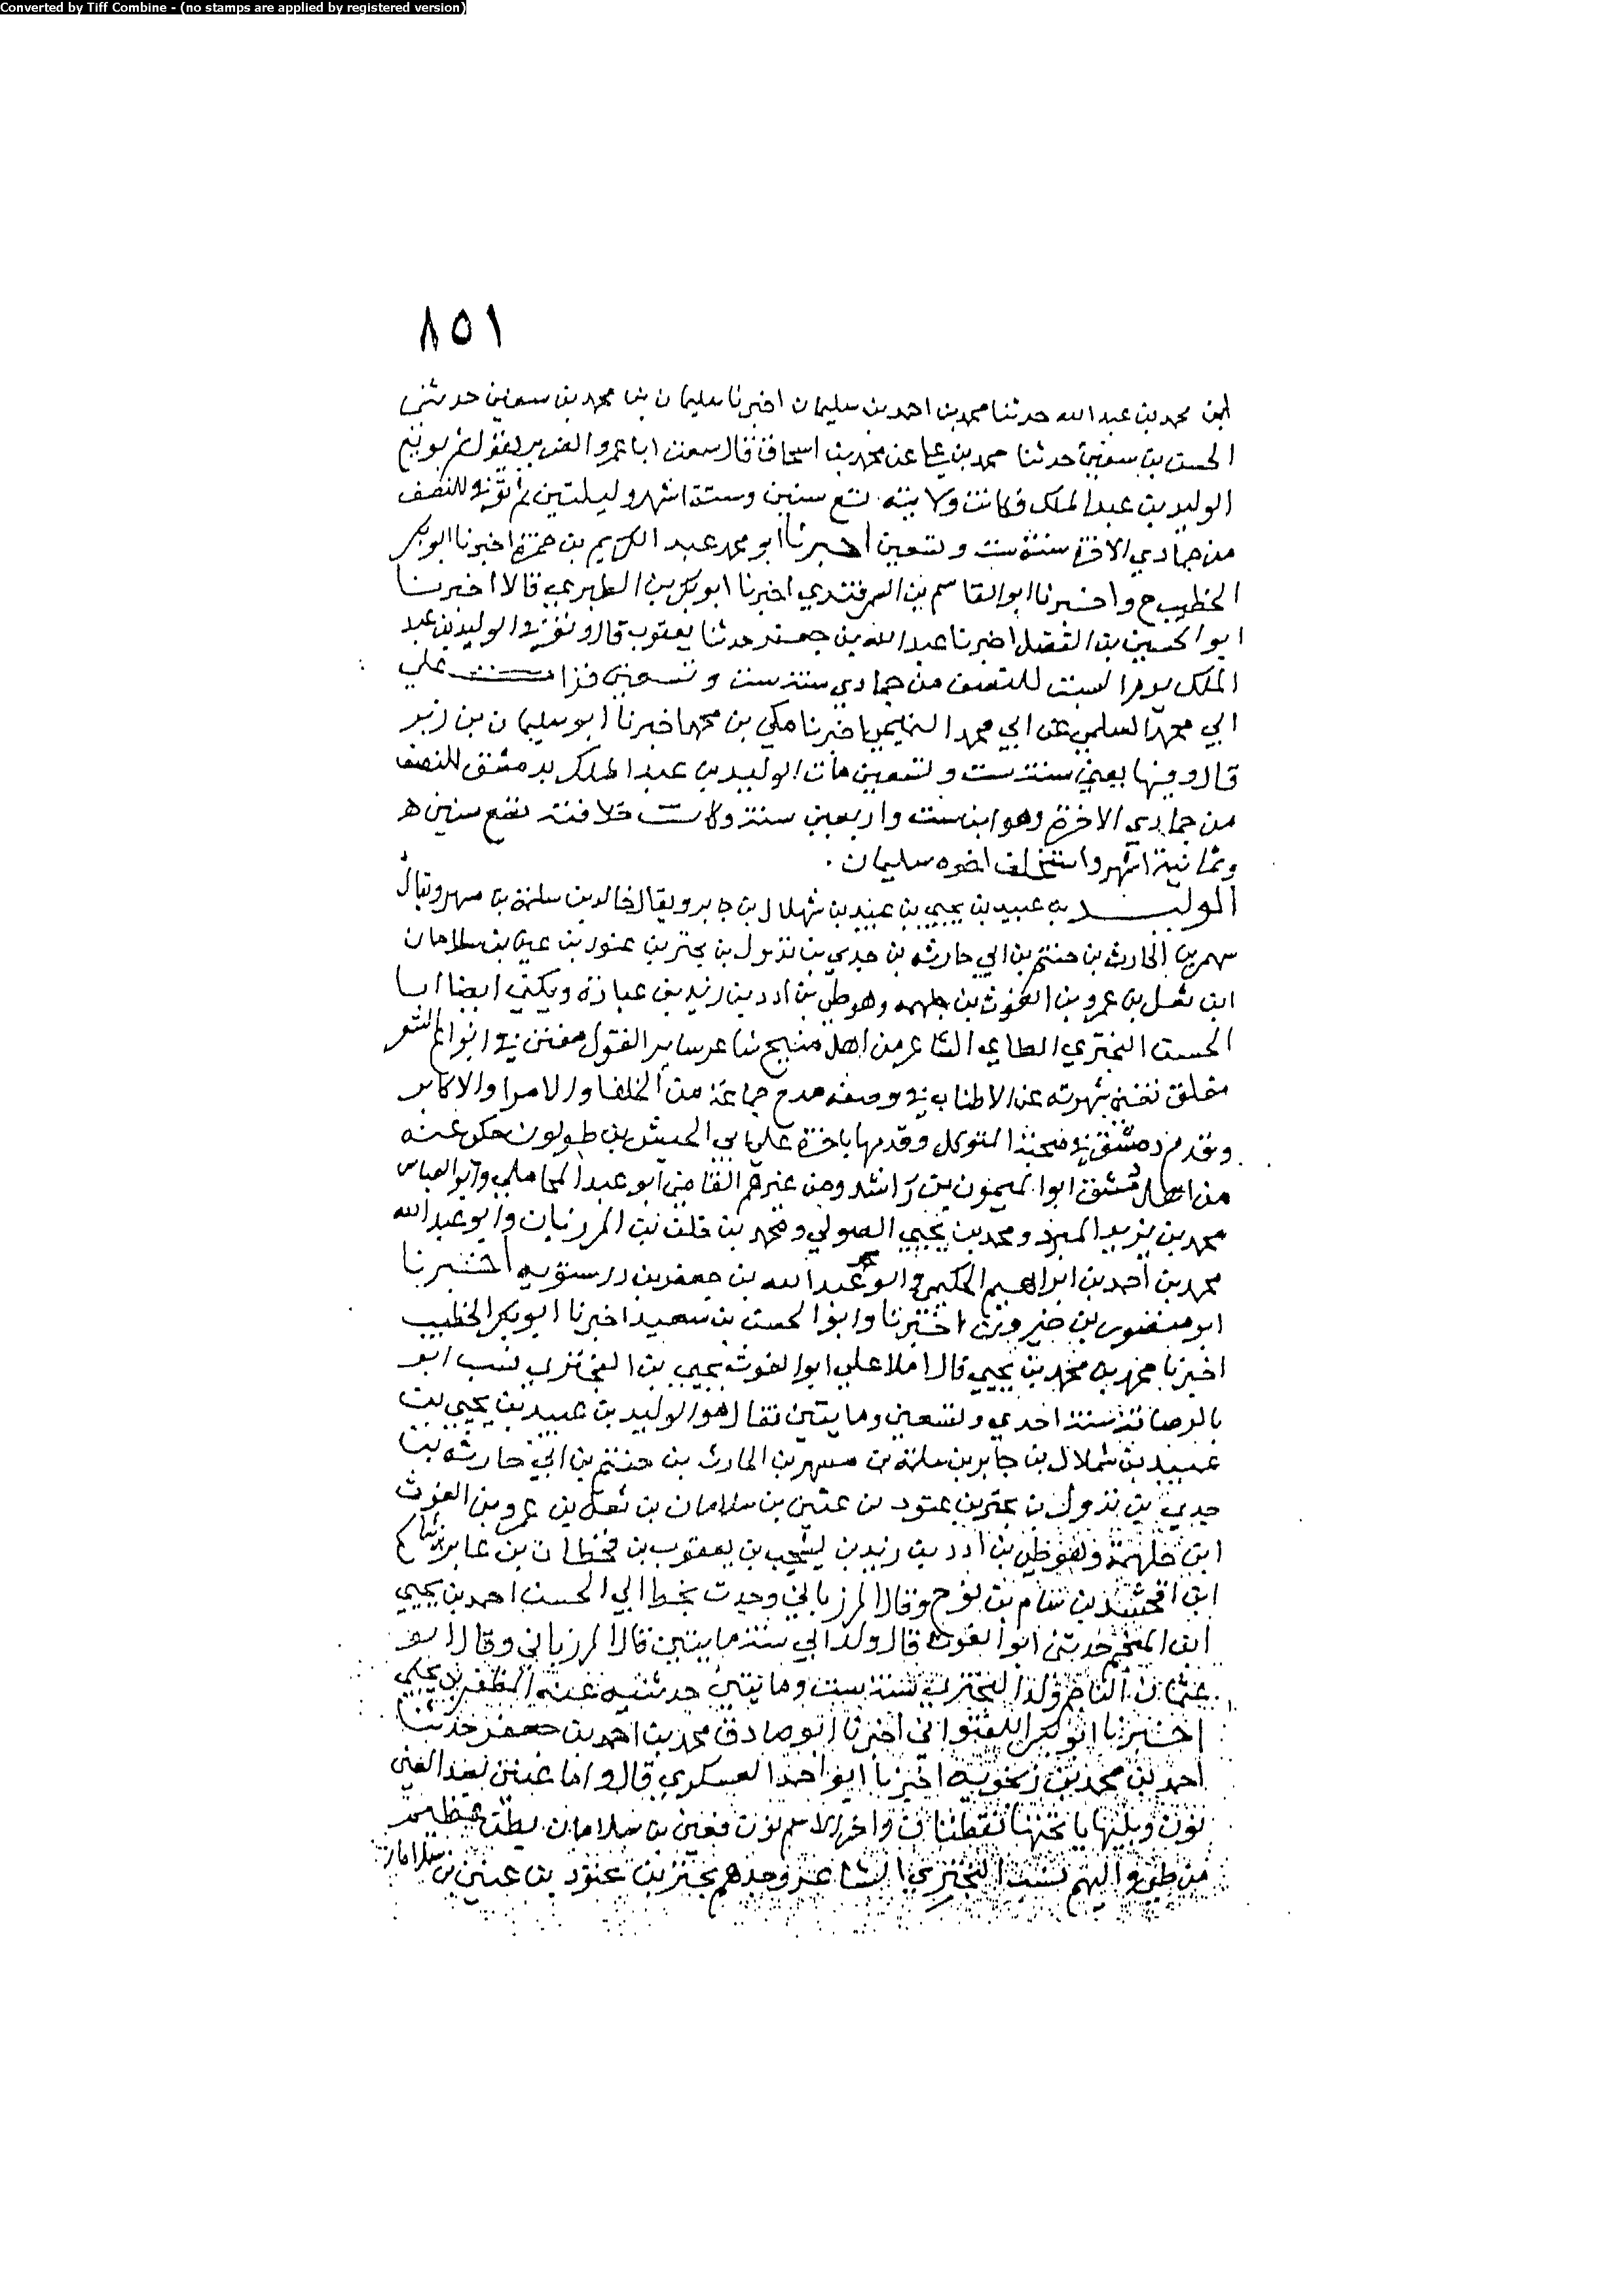 Converted by Tiff Combine - (no stamps are applied by registered version)
٨٥١
ابن محمد بن عبد الله حدثنا محمد بن احمد بن سليمان اخبرنا سليمان بن محمد بن سفين حدثني
الحسن بن سفين حدثنا محمد بن علي عن محمد بن اسحاق قال سمعت ابا عمرو الضرير يقول ثم بويع
الوليد بن عبد الملك فكانت ولايته تسع سنين وستة اشهر وليلتين ثم توفي للنصف
من جمادي الاخرة سنة ست وتسعين اخبرنا ابو محمد عبد الكريم بن حمزة اخبرنا ابو بكر
الخطيب ح واخبرنا ابو القاسم بن السمرقندي اخبرنا ابو بكر بن الطبري قالا اخبرنا
ابو الحسين بن الفضل اخبرنا عبد الله بن جعفر حدثنا يعقوب قال وتوفي الوليد بن عبد
الملك يوم السبت للنصف من جمادي سنة ست وتسعين قرات علي
ابي محمد السلمي عن ابي محمد التميمي اخبرنا مكي بن محمد اخبرنا ابو سليمان بن زبر
قال وفيها يعني سنة ست وتسعين مات الوليد بن عبد الملك بدمشق للنصف
من جمادي الاخرة وهو ابن ست واربعين سنة وكانت خلافته تسع سنين
وثمانية اشهر واستخلف اخوه سليمان
الوليد بن عبيد بن يحيي بن عبيد بن شملال بن جابر ويقال خالد بن سلمة بن مسهر ويقال
سهم بن الحارث بن خيثم بن ابي حارثه بن جدي بن تدول بن بحتر بن عتود بن عنين بن سلامان
ابن ثعل بن عمرو بن الغوث بن جلهمه وهو طي بن ادد بن زيد بن عبادة ويكني ايضا ابا
الحسن البحتري الطاي الشاعر من اهل منبج شاعر ساير القول مفتن في انواع الشعر
مفلق تغني شهرته عن الاطناب في وصفه مدح جماعة من الخلفا والامرا والاكابر
وقدم دمشق في صحبة المتوكل وقدمها باخرة علي ابي الجيش بن طولون حكي عنه
من اهل دمشق ابو الميمون بن راشد ومن غيرهم القاضي ابو عبد المحاملي وابو العباس
محمد بن يزيد المبرد ومحمد بن يحيي الصولي ومحمد بن خلف بن المرزبان وابو عبد الله
محمد بن احمد بن ابراهيم الحكيمي وابو محمد عبد الله بن جعفر بن درستويه اخبرنا
ابو منصور بن خيرون اخبرنا وابو الحسن بن سعيد اخبرنا ابو بكر الخطيب
اخبرنا محمد بن محمد بن يحيي قال املا علي ابو الغوث يحيي بن البحتري نسب ابو
بالرصافة سنة احدي وتسعين ومايتين فقال هو الوليد بن عبيد بن يحيي بن
عبيد بن شملال بن جابر بن سلمة بن مسهر بن الحارث بن خيثم بن ابي حارثه بن
جدي بن تدول بن بحتر بن عتود بن عنين بن سلامان بن ثعل بن عمرو بن الغوث
ابن جلهمة وهو طي بن ادد بن زيد بن يشجب بن يعقوب بن قحطان بن عابر بن شالخ
ابن ارفخشد بن سام بن نوح وقال المرزباني وجدت بخط ابي الحسن احمد بن يحيي
ابن المنجم حدثني ابو الغوث قال ولد ابي سنة مايتين قال المرزباني وقال ابو
عثمان الناجم ولد البحتري سنة ست ومايتين حدثنيه عنه المظفر بن يحيي
اخبرنا ابو بكر اللفتواني اخبرنا ابو صادق محمد بن احمد بن جعفر حدثنا
احمد بن محمد بن زنجويه اخبرنا ابو احمد العسكري قال واما عنين بعد العين
نون ويليها يا تحتها نقطتان واخر الاسم نون فعنين بن سلامان بطن عظيم
من طي واليهم نسب البحتري الشاعر وجدهم بحتر بن عتود بن عنين بن سلامان